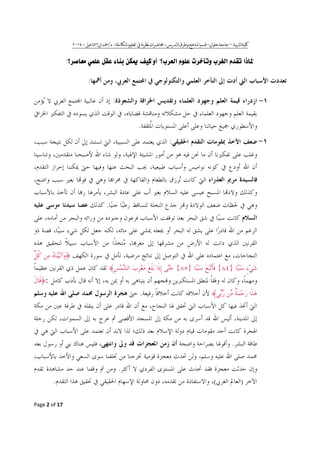 كلية التربية - جامعة حلوان - قسم المناهج وطرق التدريس - محاضرات نظرية في العلوم المتكاملة - د/حمدان إسماعيل - ٢٠١٨
لماذا تقدم الغرب وتأخرت علوم العرب؟ أو كيف يمكن بناء عقل علمي معاصر؟
تعددت الأسباب التي أدت إلى التأخر العلمي والتكنولوجي في المجتمع العربي، ومن أهمها:
١- ازدراء قيمة العلم وجهود العلماء وتقديس الخرافة والشعوذة: إذ أن غالبية المجتمع العربي لا يُؤمن
بقيمة العلم وجهود العلماء في حل مشكلاته ومناقشة قضاياه، في الوقت الذي يسوده في التفكير الخرافي
والأسطوري جميع حياتنا وعلى أعلى المستويات المثقفة.
٢- ضعف الأخذ بمقومات التقدم الحقيقي: الذي يعتمد على السببية، التي تستند إلى أن لكل نتيجة سبب،
وغلب على تفكيرنا أن ما نحن فيه هو من أمور المشيئة الإلهية، ولو شاء الله لأصبحنا متقدمين، وتناسينا
أن الله أودع في كونه نواميس وأسباب طبيعية، يجب البحث عنها وفيها حتى يمكننا إحراز التقدم،
فالسيدة مريم العذراء التي كانت تُرزق بالطعام والفاكهة في محرابها وهي في قوتها بغير سبب واضح،
وكذلك ولادتها المسيح عيسى عليه السلام بغير أب على عادة البشر، يأمرها ربها أن تأخذ بالأسباب
وهي في لحظات ضعف الولادة وتهز جذع النخلة لتساقط رطبًا جنيًا. كذلك عصا سيدنا موسى عليه
السلام كانت سببًا في شق البحر بعد توقفت الأسباب فرعون وجنوده من ورائه والبحر من أمامه، على
الرغم من الله قادرًا على يشق له البحر أو يجعله يمشي على مائه، لكنه جعل لكل شيء سببًا، قصة ذو
القرنين الذي دانت له الأرض من مشرقها إلى مغربها، مُتخذًا من الأسباب سبيلاً لتحقيق هذه
النجاحات، مع اعتماده على الله في التوصل إلى نتائج مرضية، تأمل في سورة الكهف ﴿وَآتَيْنَاهُ مِن كُلِّ
شَيْءٍ سَبَبًا {٨٤} فَأَتْبَعَ سَبَبًا {٨٥} حَتَّى إِذَا بَلَغَ مَغْرِبَ الشَّمْسِ﴾ لقد كان عمل ذي القرنين عظيماً
ومهماً، وكان له وفقاً لمنطق المستكبرين وفهمهم أن يتباهى به أو يمن به، إلا أنه قال بأدب كامل ﴿قَالَ
هَذَا رَحْمَةٌ مِّن رَّبِّي﴾ لأن أخلاقه كانت أخلاقاً رفيعة. حتى هجرة الرسول محمد صلى الله عليه وسلم
التي أتخذ فيها كل الأسباب التي تحقق لها النجاح، مع أن الله قادر على أن ينقله في طرفة عين من مكة
إلى المدينة، أليس الله قد أسرى به من مكة إلى المسجد الأقصى ثم عرج به إلى السموات، لكن رحلة
الهجرة كانت أخذ مقومات قيام دولة الإسلام بعد ذلك؛ لذا لابد أن نعتمد على الأسباب التي هي في
طاقة البشر. وأقولها بصراحة واضحة أن زمن المعجزات قد ولى وانتهى، فليس هناك نبي أو رسول بعد
محمد صلى الله عليه وسلم، ولن تحدث معجزة قومية تخرجنا من تخلفنا سوى السعي والأخذ بالأسباب،
وإن حدثت معجزة فقد تحدث على المستوى الفردي لا أكثر. ومن ثم وقفنا عند حد مشاهدة تقدم
الآخر (العالم الغربي)، والاستفادة من تقدمه، دون محاولة الإسهام الحقيقي في تحقيق هذا التقدم.
Page 2 of 17